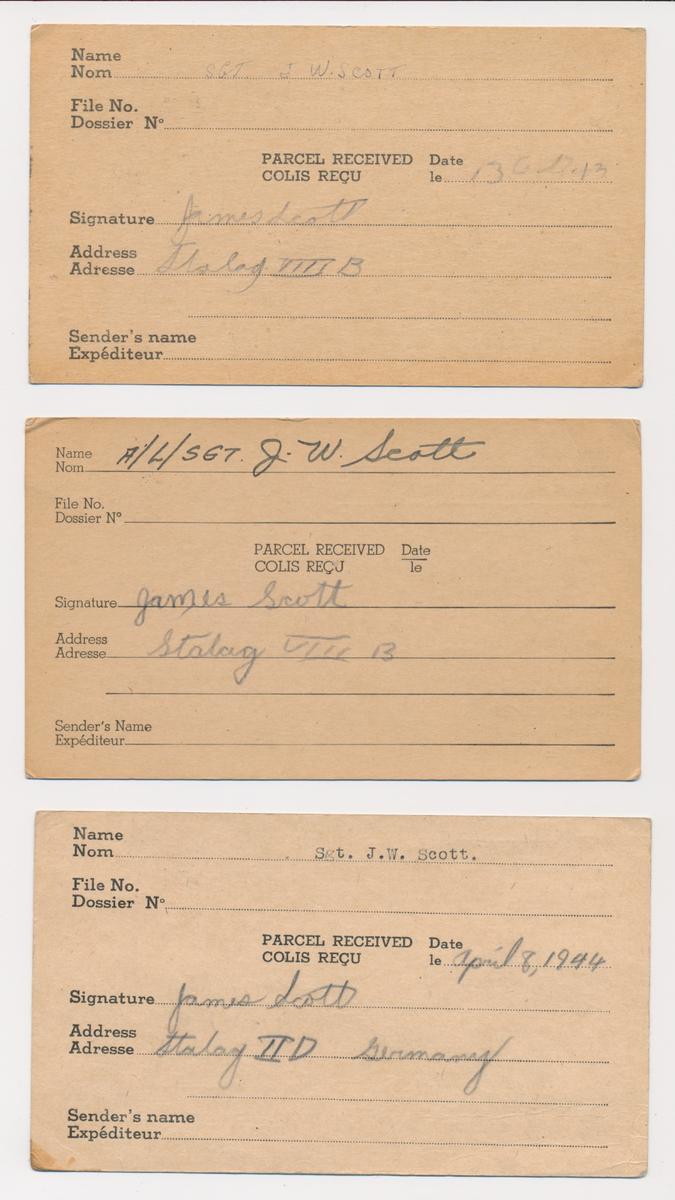 Name
Nom SGT. J W. SCOTT
File No.
Dossier Nº
PARCEL RECEIVED Date
COLIS REÇU le
Signature James Scott
Address
Adresse Stalag VIII B
Sender's name
Expéditeur
Name A/L/SGT. J. W. Scott
Nom
File No.
Dossier Nº
PARCEL RECEIVED Date
COLIS REÇU le
Signature James Scott
Address
Adresse Stalag VIII B
Sender's Name
Expéditeur
Name
Nom Sgt. J.W. Scott.
File No.
Dossier Nº
PARCEL RECEIVED Date
COLIS REÇU le April 8, 1944
Signature James Scott
Address
Adresse Stalag II D Germany
Sender's name
Expéditeur